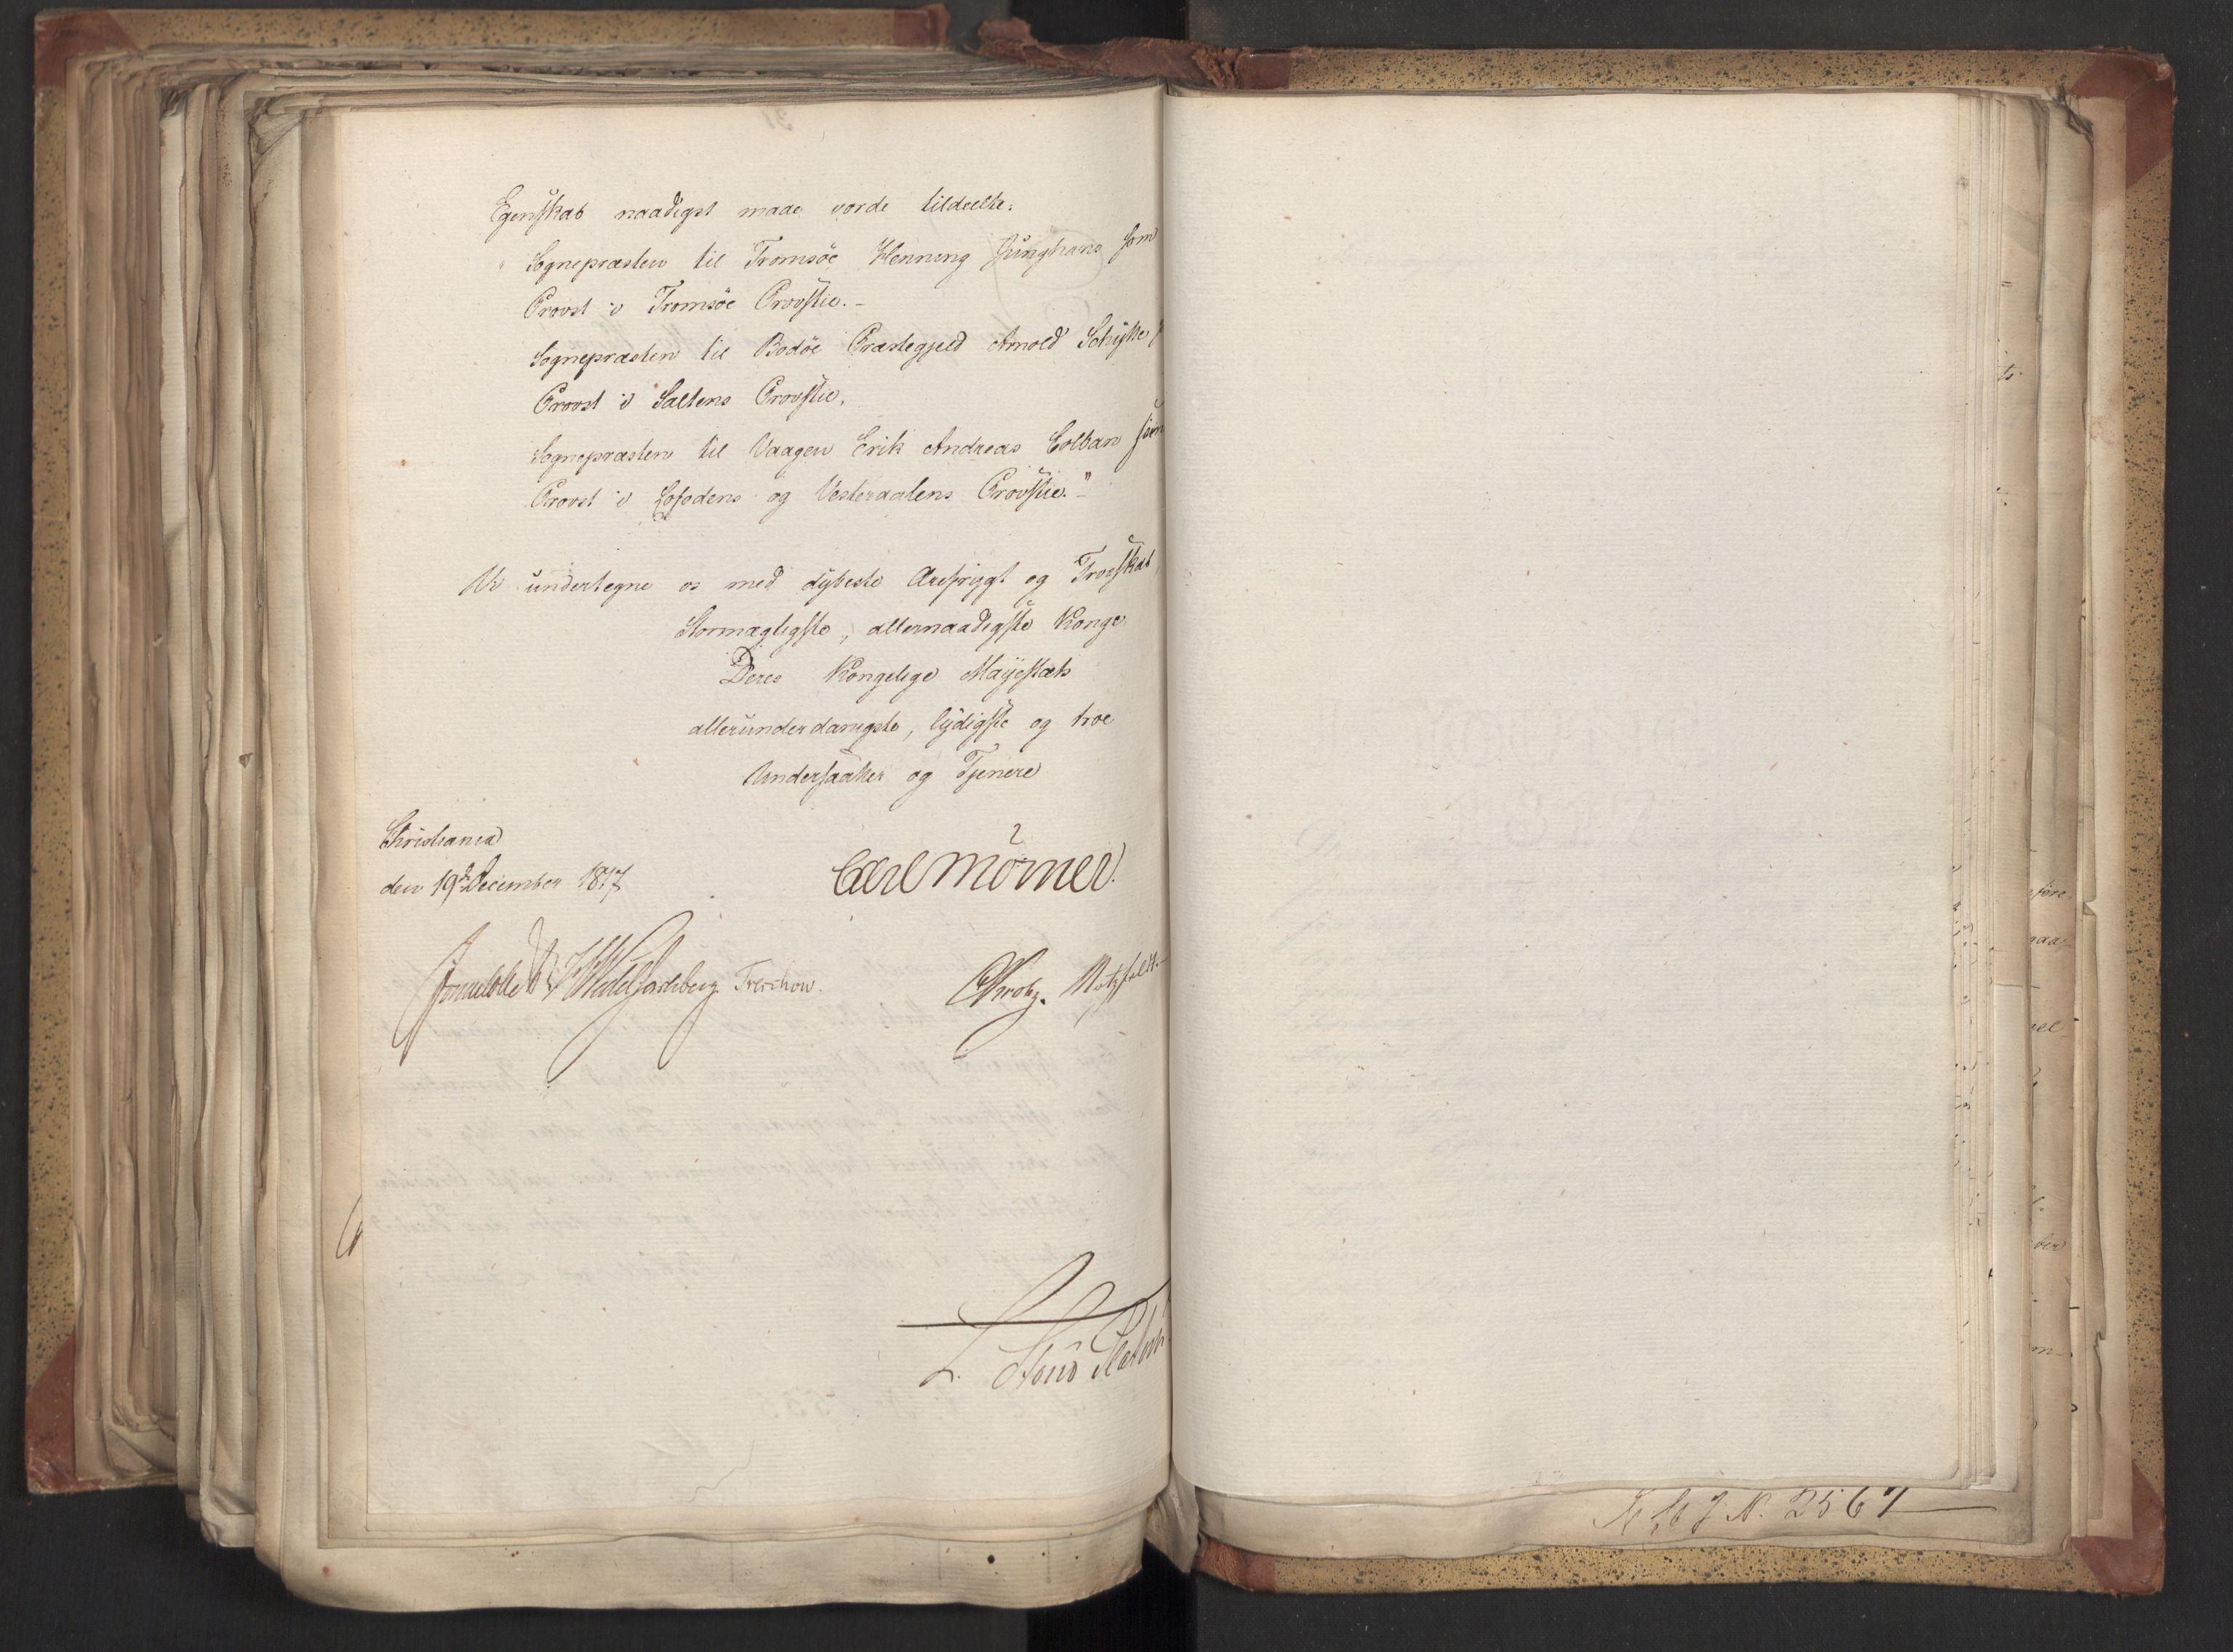 Egenskab naadigst maae vorde tildeelte:
Sognepræsten til Tromsöe Henning Junghans som
Provst i Tromsöe Provstie.-
Sognepræsten til Bodöe Præstegjeld Arnold Schytte
Provst i Saltens Provstie,
Sognepræsten til Vaagen Erik Andreas Colban som
Provst i Lofodens og Vesteraalens Provstie."-
Vi undertegne os med dybeste Ærefrygt og Troeskab,
Stormægtigste, allernaadigste Konge
Deres Kongelige Majestæts
allerunderdanigste, lydigste og troe
Undersaatter og Tjenere
Christiania
den 19de December 1817
Carl Mörner.
Sommerhielm Wedel Jarlsberg Treschow. CKrohg. Motzfeldt.
L. Stoud Platou
N. 2567